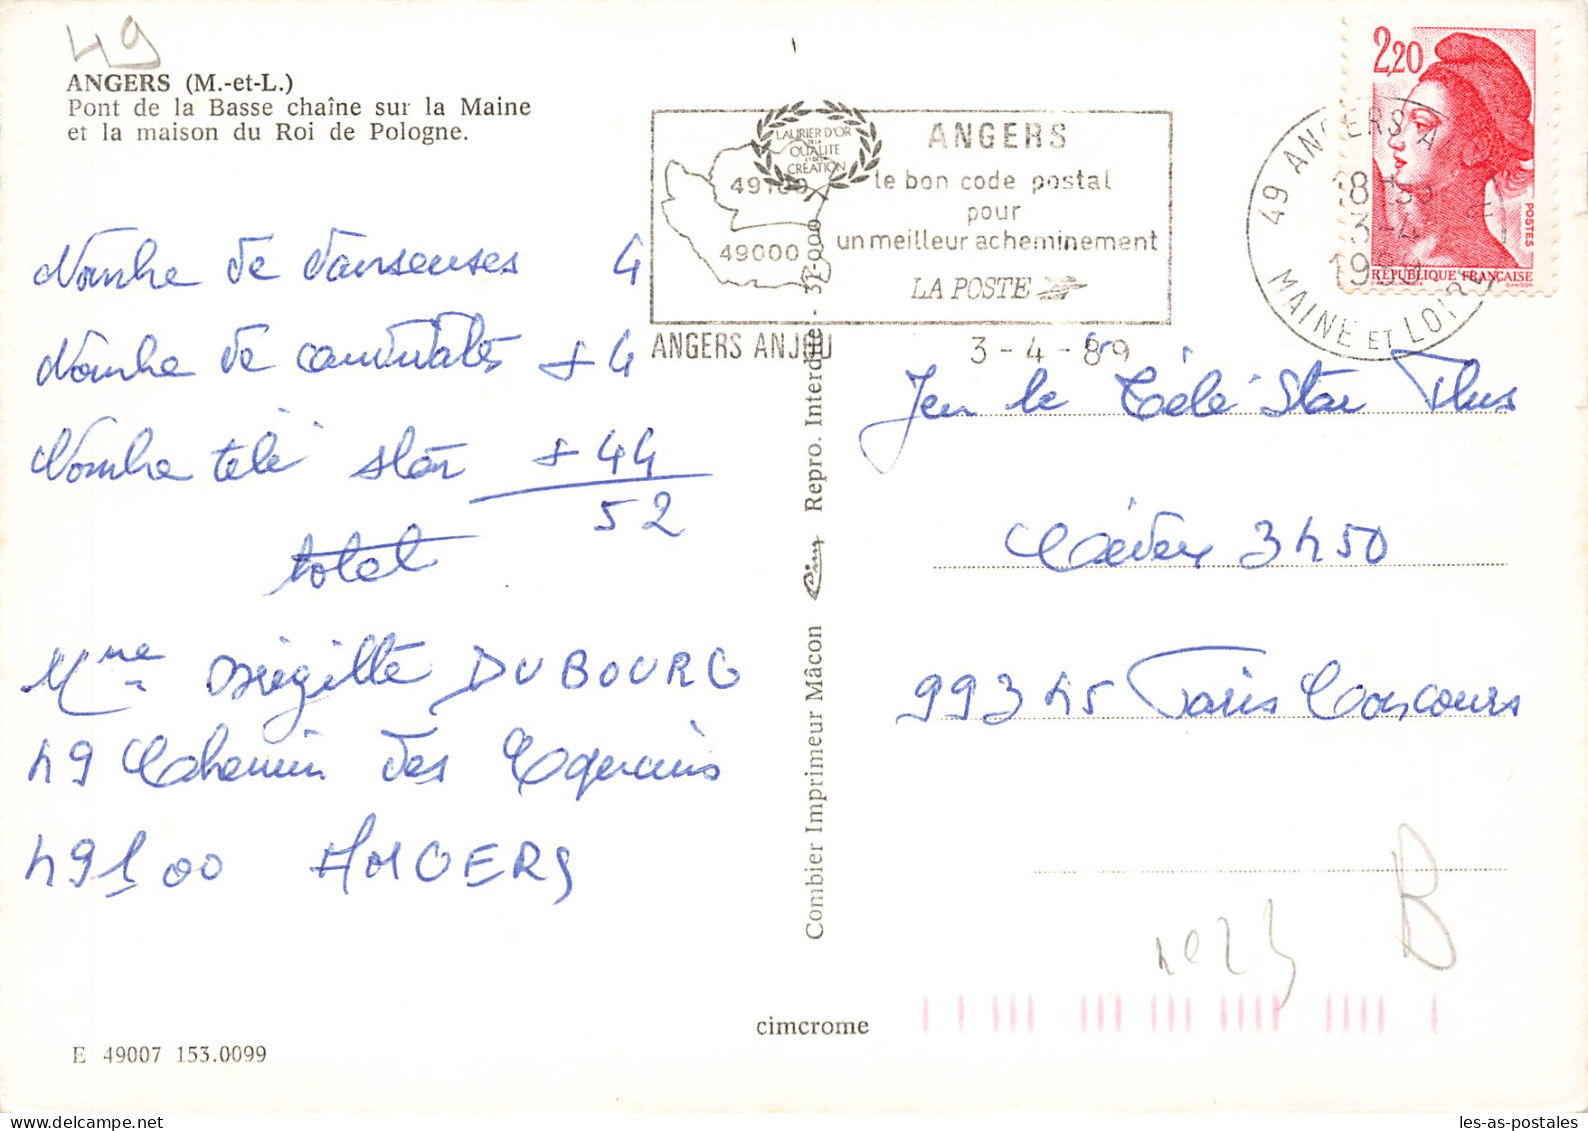 49
ANGERS (M.-et-L.)
Pont de la Basse chaîne sur la Maine
et la maison du Roi de Pologne.
Nombre de danseuses 4
Nombre de candidates + 4
Nombre télé star + 44
52
total
Mme Brigitte DUBOURG
49 Chemin des
49100 ANGERS
E 49007 153.0099
LAURIER D'OR
DE LA
QUALITE
ET DE LA
CREATION
49100
49000
ANGERS
le bon code postal
pour
un meilleur acheminement
LA POSTE
ANGERS ANJOU
3-4-89
49 ANGERS A
18
3-4
19
MAINE ET LOIRE
2,20
POSTES
RÉPUBLIQUE FRANÇAISE
Combier Imprimeur Mâcon Cim Repro. Interdite - 37-000
Jeu le Télé Star Plus
Cedex 3450
99345 Paris Concours
1023
B
cimcrome
les-as-postales